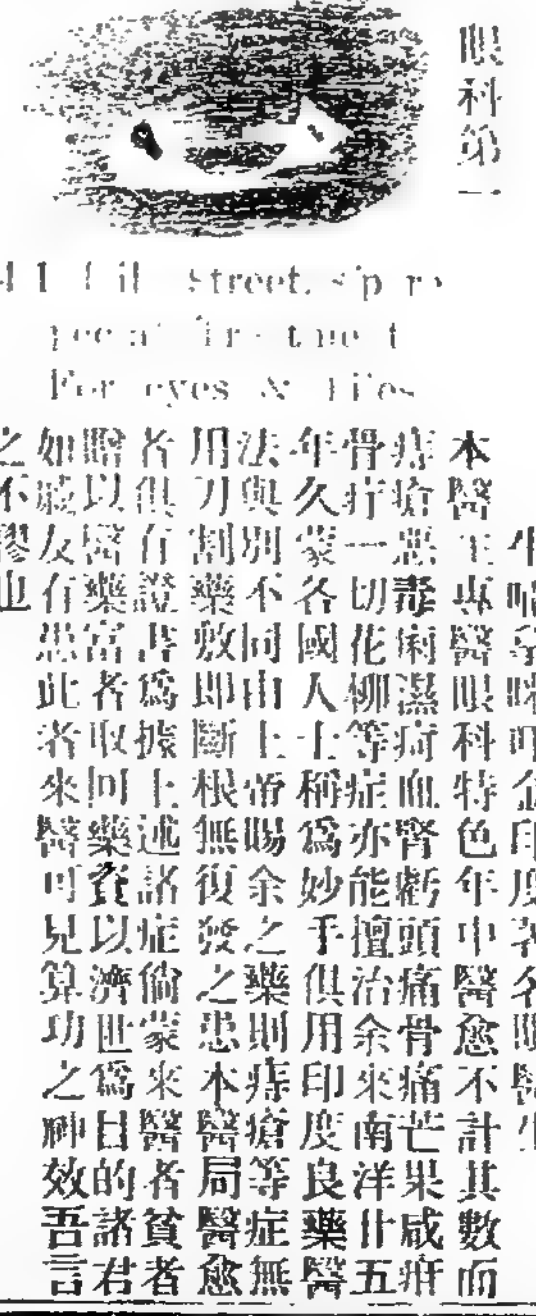 眼科第一
Street,
For eyes & Piles
本醫生專醫眼科特色年中醫愈不計其數而
痔瘡惡毒痢濕疴血腎虧頭痛骨痛芒果咸疳
骨疗一切花柳等症亦能擅治余來南洋廿五
年久蒙各國人士稱爲妙手俱用印度良藥醫
法與別不同由上帝賜余之藥則痔瘡等症無
用刀割藥敷即斷根無復發之患本醫局醫愈
者俱有證書爲據上述諸症倘蒙來醫者貧者
贈以醫藥富者取回藥資以濟世爲目的諸君
如戚友有患此者來醫可見算功之神效吾言
之不謬也